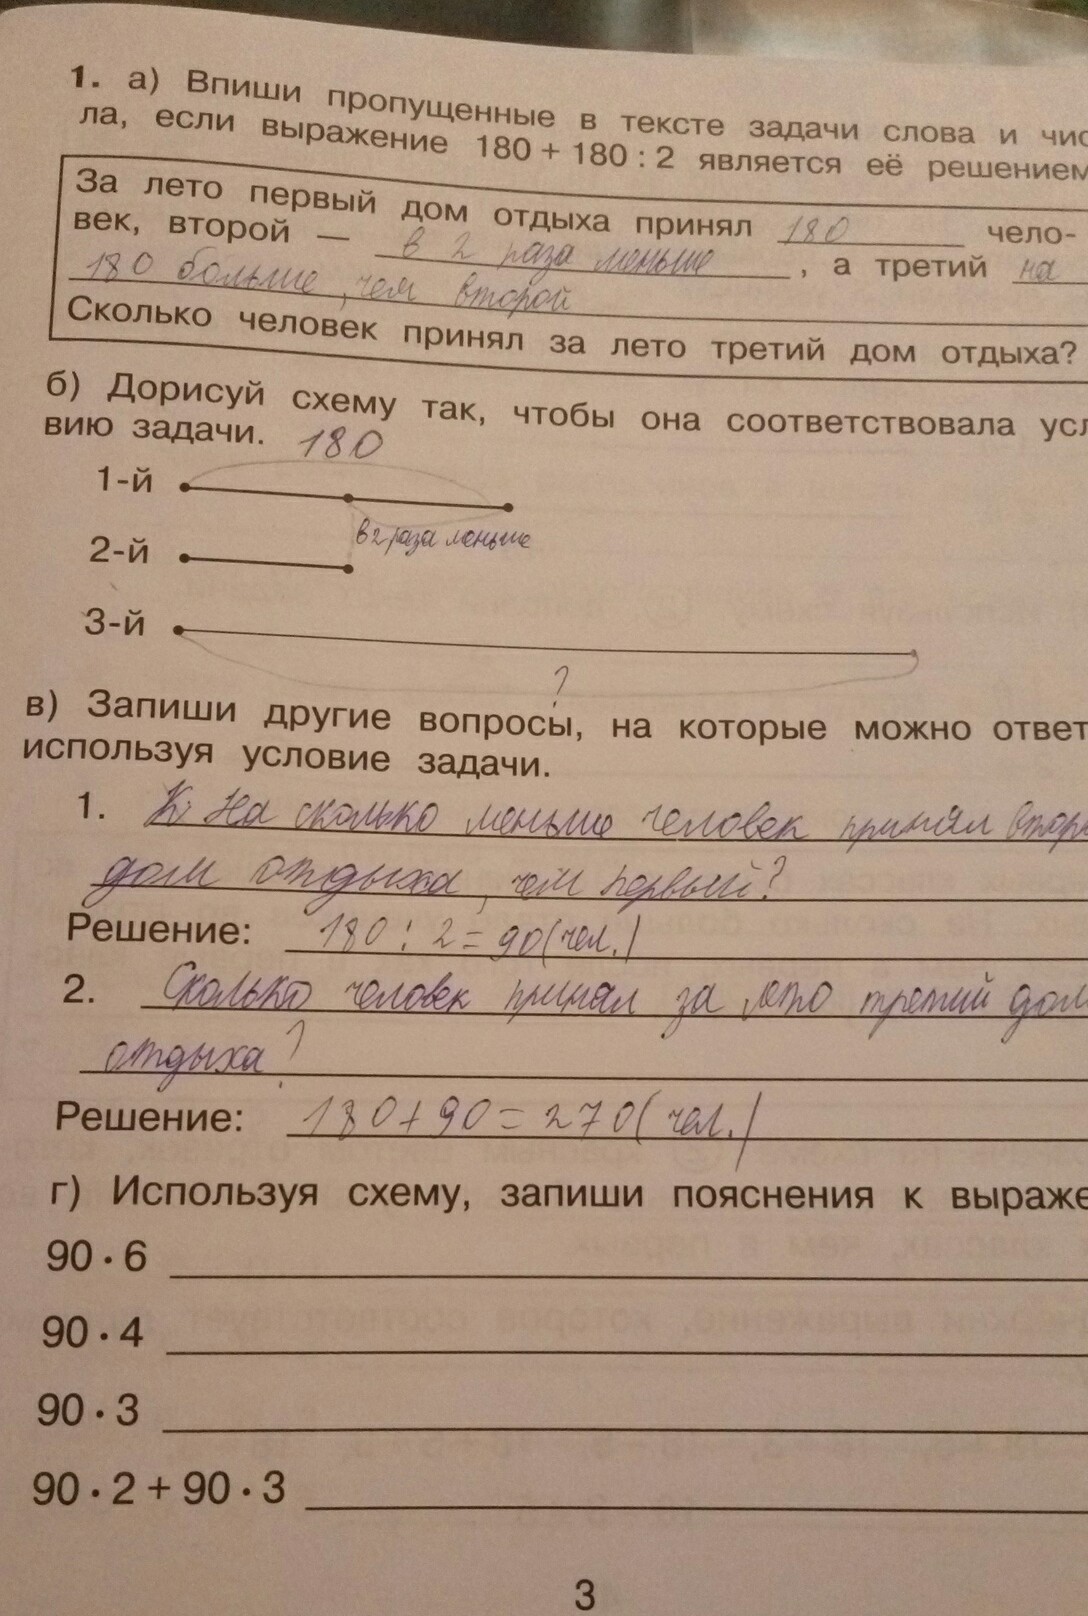 1. а) Впиши пропущенные в тексте задачи слова и чис
ла, если выражение 180 + 180 : 2 является её решением
За лето первый дом отдыха принял 180 чело-
век, второй — в 2 раза меньше, а третий на
180 больше, чем второй
Сколько человек принял за лето третий дом отдыха?
б) Дорисуй схему так, чтобы она соответствовала усл
вию задачи. 180
1-й
в 2 раза меньше
2-й
3-й
?
в) Запиши другие вопросы, на которые можно ответ
используя условие задачи.
1. На сколько меньше человек принял втор
дом отдыха, чем первый?
Решение: 180 : 2 = 90 (чел.)
2. Сколько человек принял за лето третий дом
отдыха?
Решение: 180 + 90 = 270 (чел.)
г) Используя схему, запиши пояснения к выраже
90 · 6
90 · 4
90 · 3
90 · 2 + 90 · 3
3